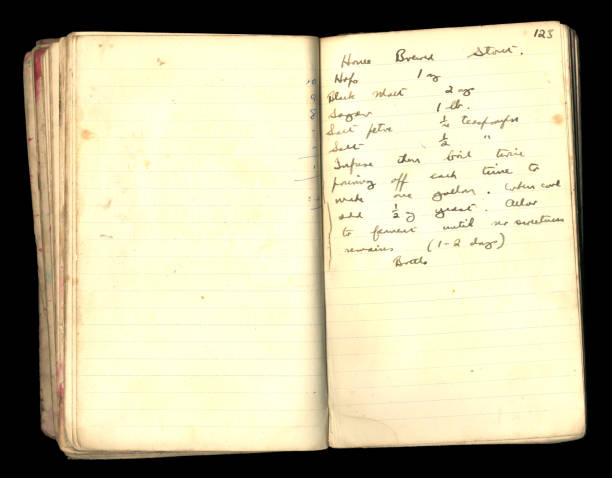 123
Home Brewed Stout.
Hops 1 oz
Black Malt 2 oz
Sugar 1 lb.
Salt petre ¼ teaspoonful
Salt ½ "
Infuse then boil twice
pouring off each time to
make one gallon. When cool
add ½ oz yeast. Allow
to ferment until no sweetness
remains (1-2 days)
Bottle